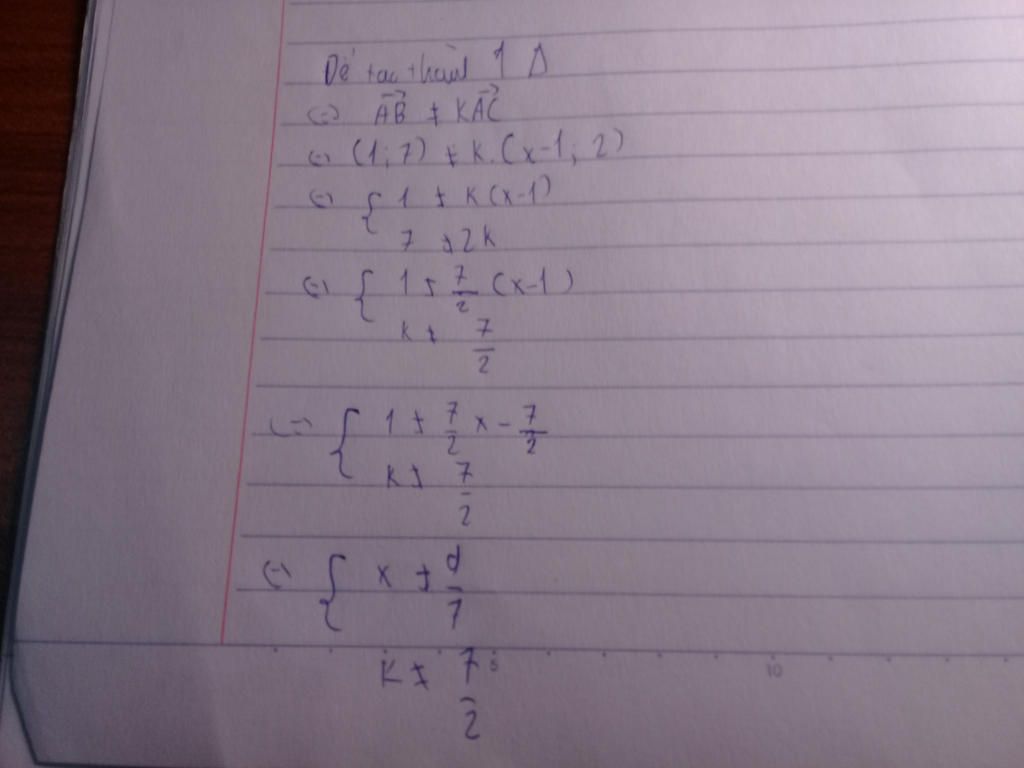 Để tạo thành 1 Δ
<=> AB ≠ KAC
<=> (1; 7) ≠ K.(x-1; 2)
<=> { 1 ≠ K(x-1)
7 ≠ 2K
<=> { 1 ≠ 7/2 (x-1)
K ≠ 7/2
<=> { 1 ≠ 7/2 x - 7/2
K ≠ 7/2
<=> { x ≠ 9/7
K ≠ 7/2
10